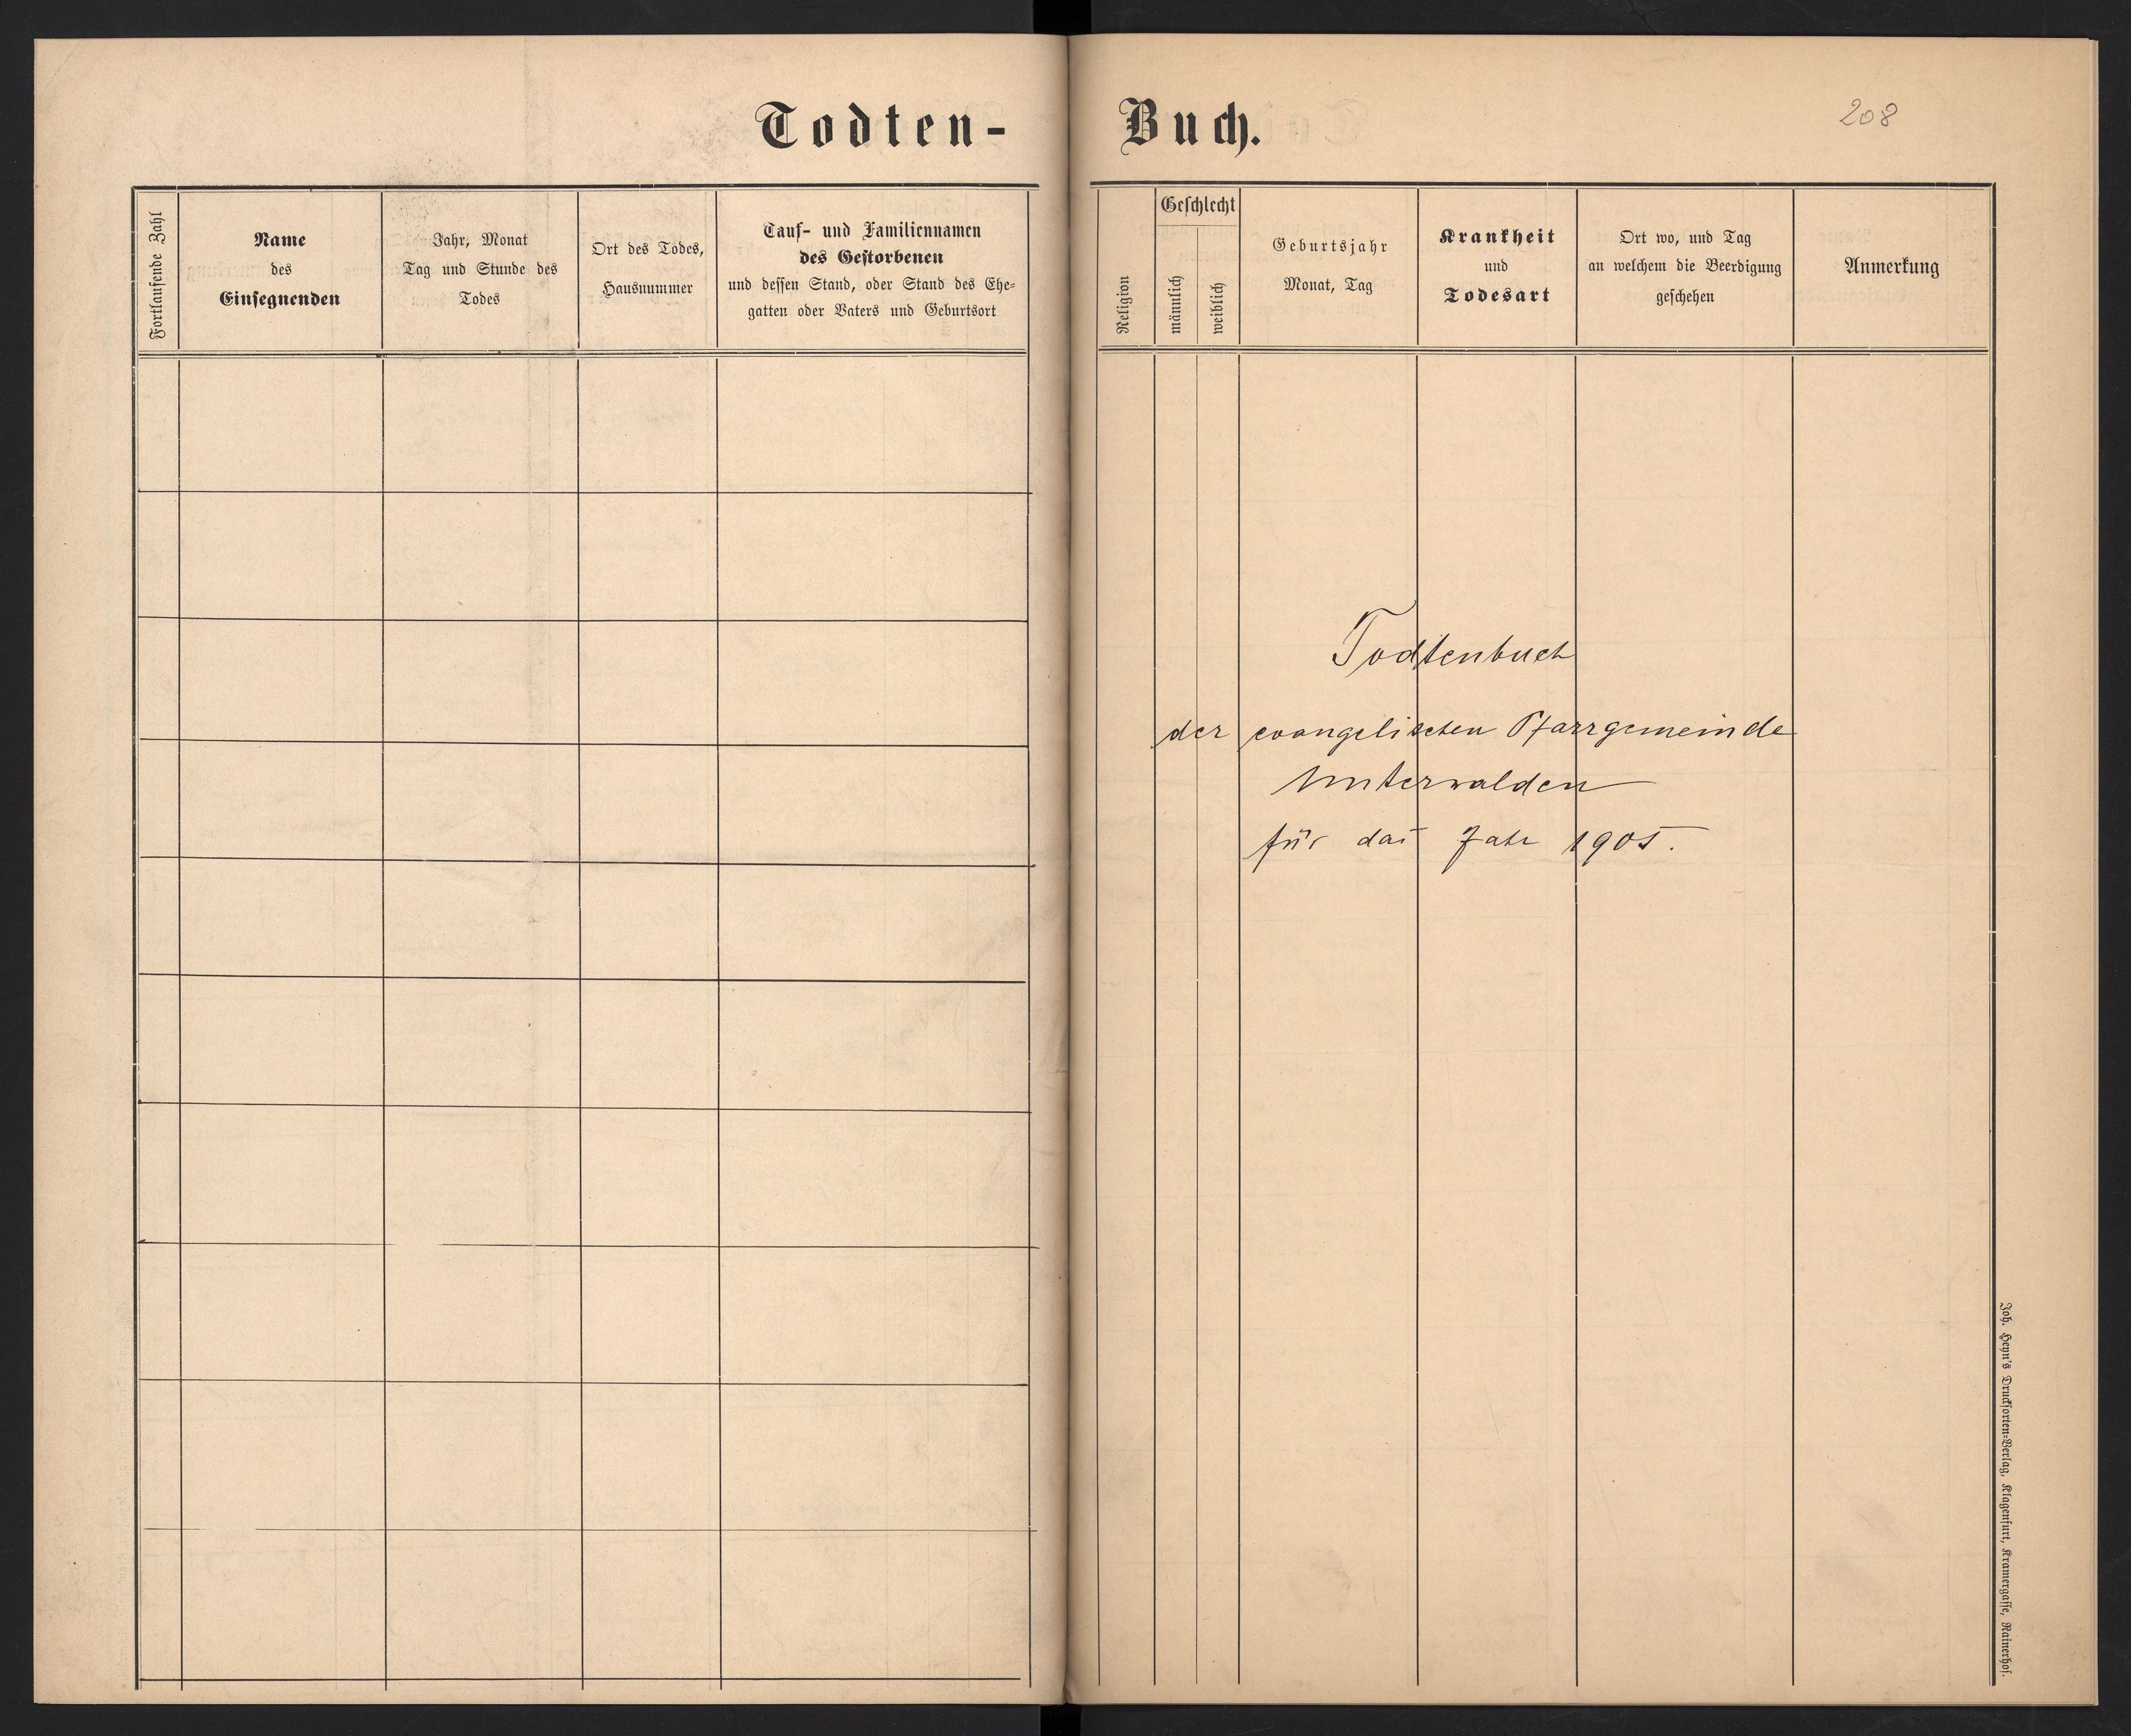 Todten-Buch.
208
Fortlaufende Zahl
Name
des
Einsegnenden
Jahr, Monat
Tag und Stunde des
Todes
Ort des Todes,
Hausnummer
Tauf- und Familiennamen
des Gestorbenen
und dessen Stand, oder Stand des Ehe-
gatten oder Vaters und Geburtsort
Religion
Geschlecht
männlich
weiblich
Geburtsjahr
Monat, Tag
Krankheit
und
Todesart
Ort wo, und Tag
an welchem die Beerdigung
geschehen
Anmerkung
Todtenbuch
der evangelischen Pfarrgemeinde
Unterwalden
für das Jahr 1905.
Joh. Heyn's Drucksorten-Verlag, Klagenfurt, Kramergasse, Rainerhof.